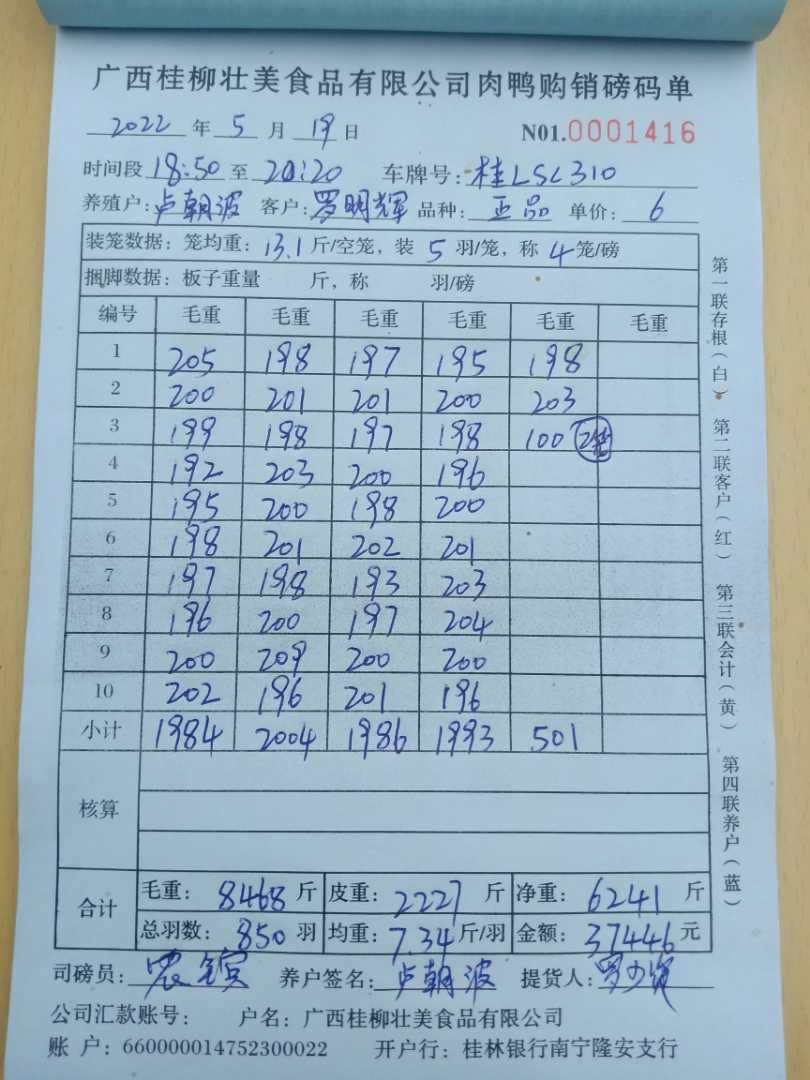 广西桂柳壮美食品有限公司肉鸭购销磅码单
2022 年 5 月 19 日 N01.0001416
时间段 18:50 至 20:20 车牌号: 桂LSL310
养殖户: 卢朝波 客户: 罗明辉 品种: 正品 单价: 6
装笼数据: 笼均重: 13.1 斤/空笼, 装 5 羽/笼, 称 4 笼/磅
捆脚数据: 板子重量 斤, 称 羽/磅
编号 毛重 毛重 毛重 毛重 毛重 毛重
1 205 198 197 195 198
2 200 201 201 200 203
3 199 198 197 198 100 2笼
4 192 203 200 196
5 195 200 198 200
6 198 201 202 201
7 197 198 193 203
8 196 200 197 204
9 200 209 200 200
10 202 196 201 196
小计 1984 2004 1986 1993 501
核算
合计 毛重: 8468 斤 皮重: 2227 斤 净重: 6241 斤
总羽数: 850 羽 均重: 7.34 斤/羽 金额: 37446 元
司磅员: 农 养户签名: 卢朝波 提货人: 罗少
公司汇款账号: 户名: 广西桂柳壮美食品有限公司
账 户: 660000014752300022 开户行: 桂林银行南宁隆安支行
第一联存根(白) 第二联客户(红) 第三联会计(黄) 第四联养户(蓝)